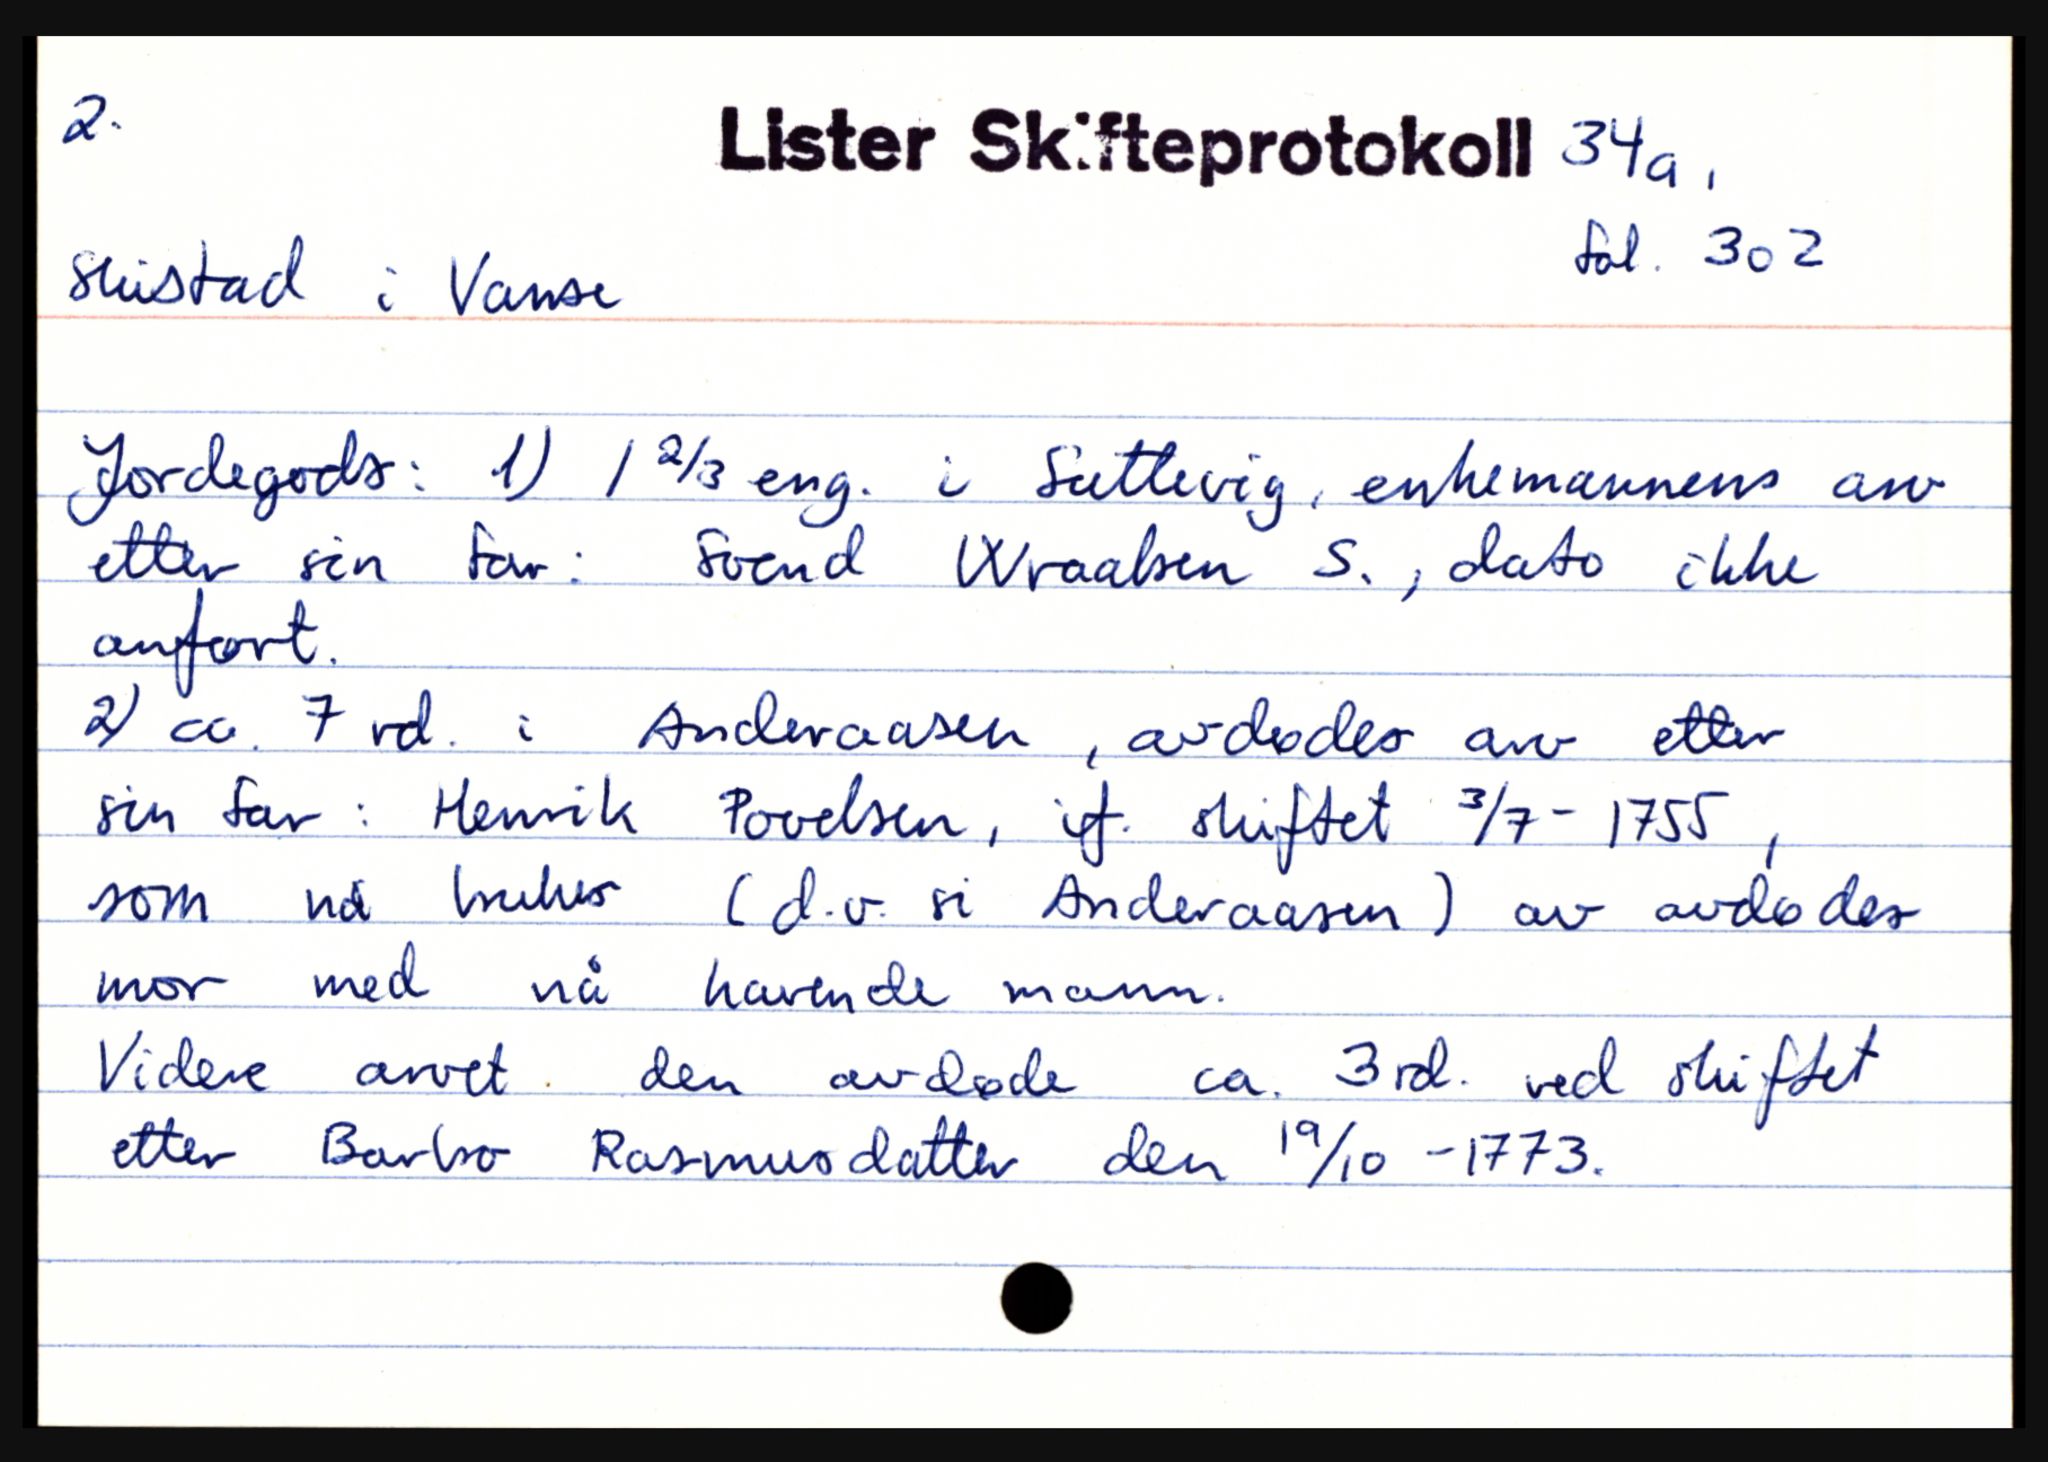 2.
Lister Skifteprotokoll 34a,
fol. 302
Skistad i Vanse
Jordegods: 1) 1 2/3 eng. i Sættevig, enkemannens arv
etter sin far: Svend Wraalsen S., dato ikke
anført.
2) ca. 7 rd. i Anderaasen, avdødes arv etter
sin far: Henrik Povelsen, jf. skiftet 3/7 - 1755,
som nå brukes (d.v. si Anderaasen) av avdødes
mor med nå havende mann.
Videre arvet den avdøde ca. 3 rd. ved skiftet
etter Barbro Rasmusdatter den 19/10 - 1773.